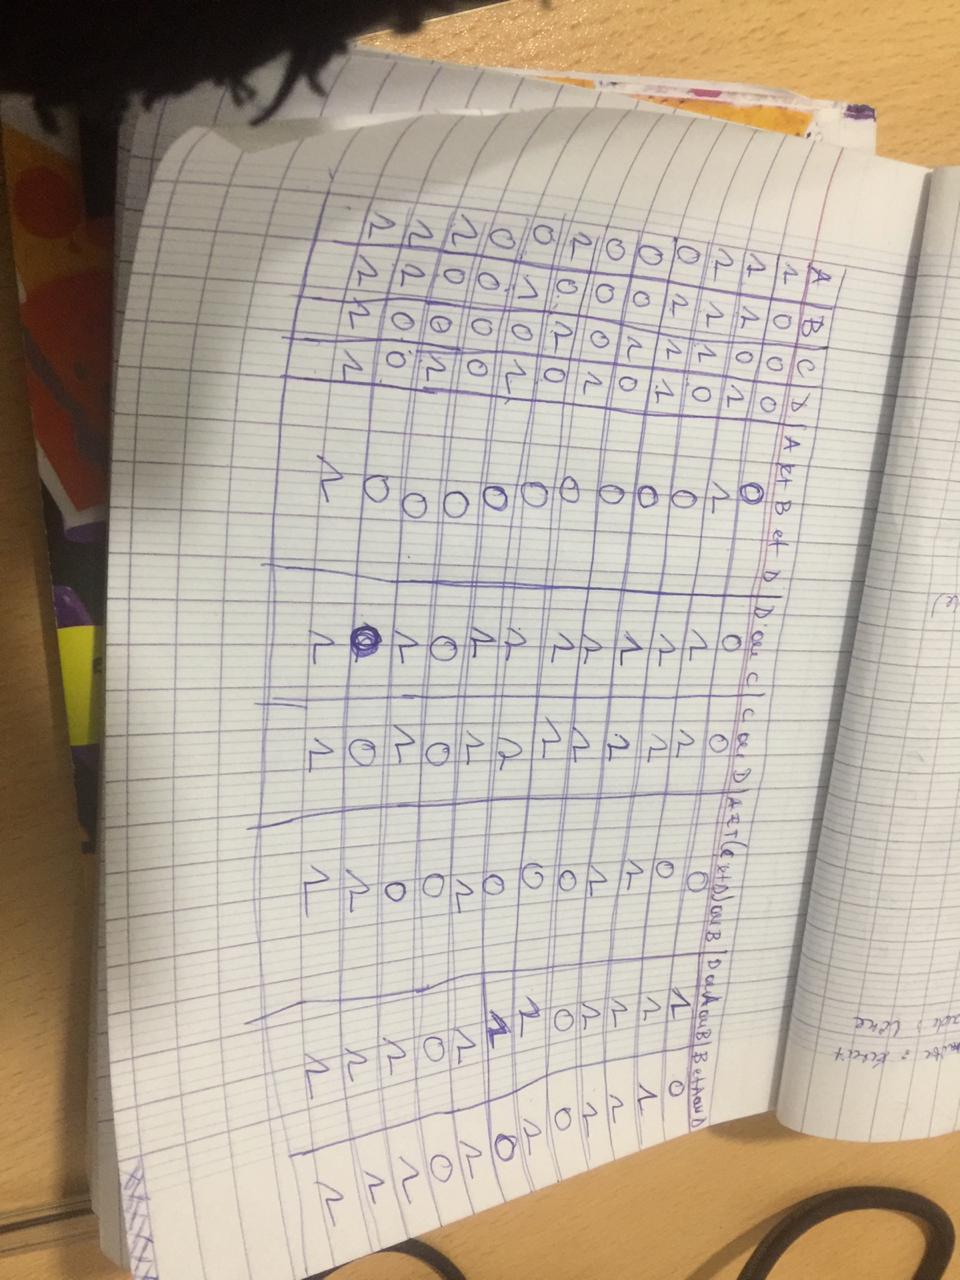 A B C D A et B et D D ou C C ou D A ET (C et D) ou B D ou A ou B B et A ou D
1 0 0 0 0 0 0 0 1 0
1 1 0 1 1 1 1 0 1 1
1 1 1 0 0 1 1 1 1 1
0 1 1 1 0 1 1 1 1 1
0 0 1 0 0 1 1 0 0 0
0 0 0 1 0 1 1 0 1 1
1 0 1 0 0 1 1 0 1 0
0 1 0 1 0 1 1 1 1 1
0 0 0 0 0 0 0 0 0 0
1 0 0 1 0 1 1 0 1 1
1 1 0 0 0 0 0 1 1 1
1 1 1 1 1 1 1 1 1 1